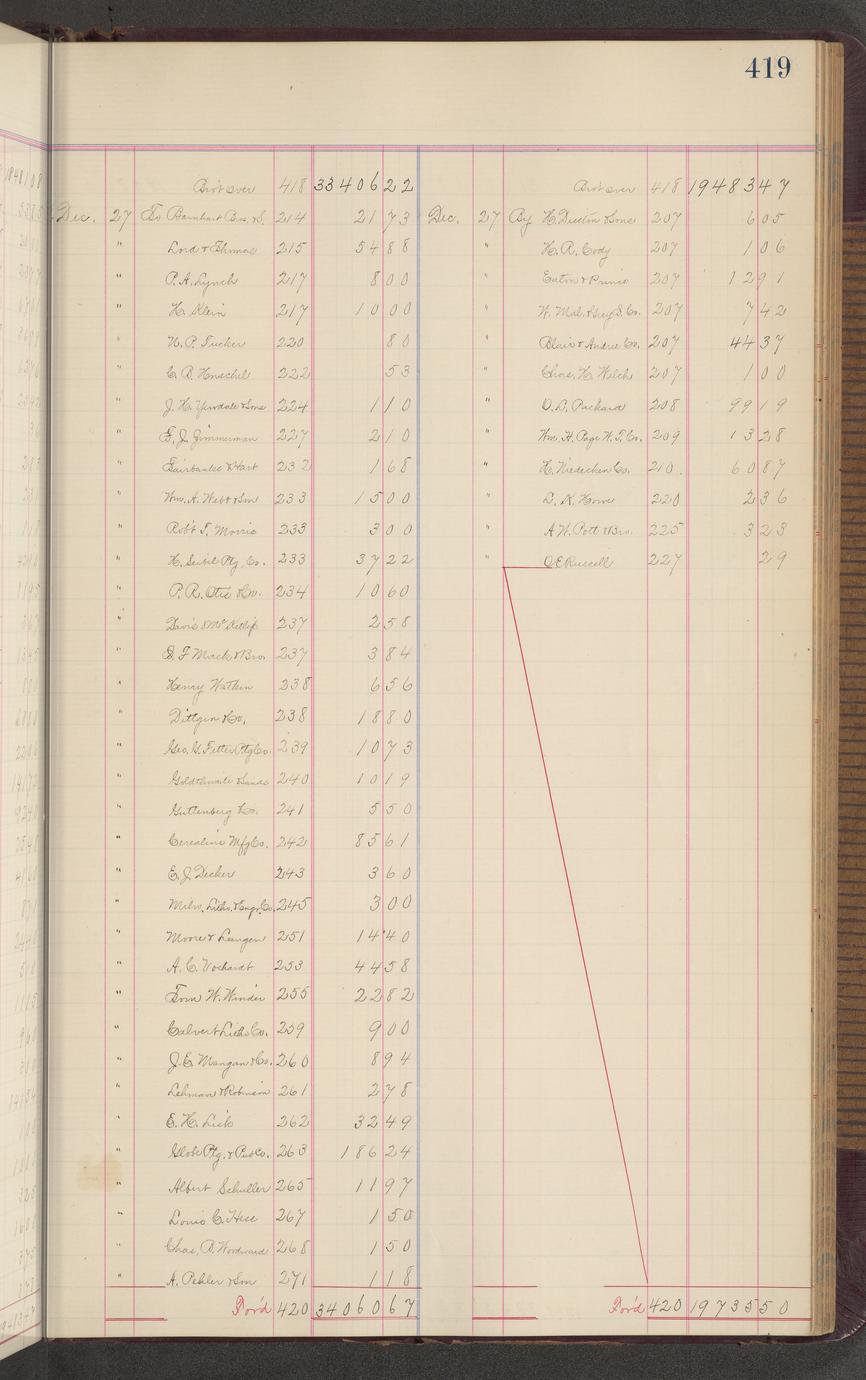 419
Brot over 418 33 406 22
Dec. 27 To Barnhart Bros. & S. 214 21 73
" Lord & Thomas 215 54 88
" P. A. Lynch 217 8 00
" H. Klein 217 10 00
" N. P. Tucker 220 80
" C. B. Henschel 222 53
" J. H. & Sons 224 1 10
" E. J. Zimmerman 227 2 10
" Fairbanks & Hart 232 1 68
" Wm. A. Webb & Son 233 15 00
" Rob't T. Morris 233 3 00
" H. Ptg. Co. 233 37 22
" P. R. Otis & Co. 234 10 60
" Davis & 237 2 58
" E. F. Mack & Bro. 237 3 84
" Henry Watkin 238 6 56
" Dittgen & Co. 238 18 80
" Geo. G. Fetter Ptg Co. 239 10 73
" Goldthwaite & Sands 240 10 19
" Guttenberg Co. 241 5 50
" Cerealine Mfg Co. 242 85 61
" E. J. Decker 243 3 60
" Milw. Litho. & Engr. Co. 245 3 00
" Moore & Langen 251 14 40
" A. C. 253 44 58
" Tom W. Winder 255 22 82
" Calvert Litho Co. 259 9 00
" J. E. Mangan & Co. 260 8 94
" Lehman & Robinson 261 2 78
" E. H. Lisk 262 32 49
" Globe Ptg. & Pub Co. 263 186 24
" Albert Schuller 265 11 97
" Louis C. 267 1 50
" Chas. B. Woodward 268 1 50
" A. & Son 271 1 18
For'd 420 34 060 67
Brot over 418 19483 47
Dec. 27 By H. Disston & Sons 207 6 05
" H. R. Cody 207 1 06
" Eaton & Prince 207 12 91
" W. Mal. & Grey S. Co. 207 7 42
" Blair & Andree Co. 207 44 37
" Chas. H. Welch 207 1 00
" O. L. Packard 208 99 19
" Wm. H. Page W. T. Co. 209 13 28
" H. Niedecken Co. 210. 60 87
" L. K. Howe 220 2 36
" A. W. Pott & Bro. 225 3 23
" O E Russell 227 29
For'd 420 19735 50